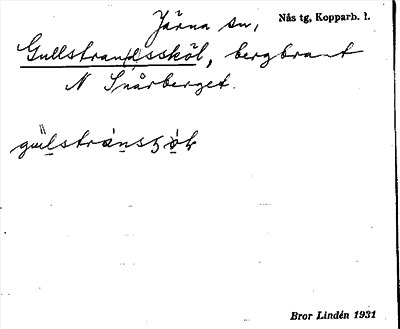 Järna sn,
Nås tg, Kopparb. l.
Gullstran(d)sköl, bergbrant
N Snårberget.
Bror Lindén 1931